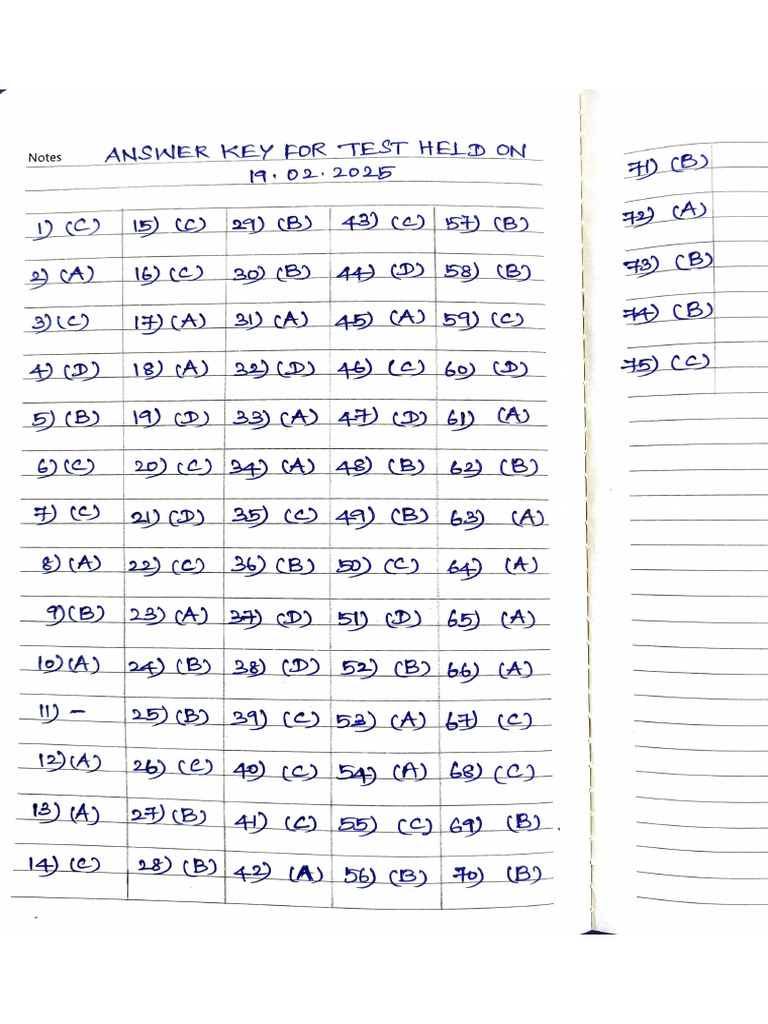 Notes ANSWER KEY FOR TEST HELD ON
19.02.2025
1) (C) 15) (C) 29) (B) 43) (C) 57) (B)
2) (A) 16) (C) 30) (B) 44) (D) 58) (B)
3) (C) 17) (A) 31) (A) 45) (A) 59) (C)
4) (D) 18) (A) 32) (D) 46) (C) 60) (D)
5) (B) 19) (D) 33) (A) 47) (D) 61) (A)
6) (C) 20) (C) 34) (A) 48) (B) 62) (B)
7) (C) 21) (D) 35) (C) 49) (B) 63) (A)
8) (A) 22) (C) 36) (B) 50) (C) 64) (A)
9) (B) 23) (A) 37) (D) 51) (D) 65) (A)
10) (A) 24) (B) 38) (D) 52) (B) 66) (A)
11) - 25) (B) 39) (C) 53) (A) 67) (C)
12) (A) 26) (C) 40) (C) 54) (A) 68) (C)
13) (A) 27) (B) 41) (C) 55) (C) 69) (B)
14) (C) 28) (B) 42) (A) 56) (B) 70) (B)
71) (B)
72) (A)
73) (B)
74) (B)
75) (C)